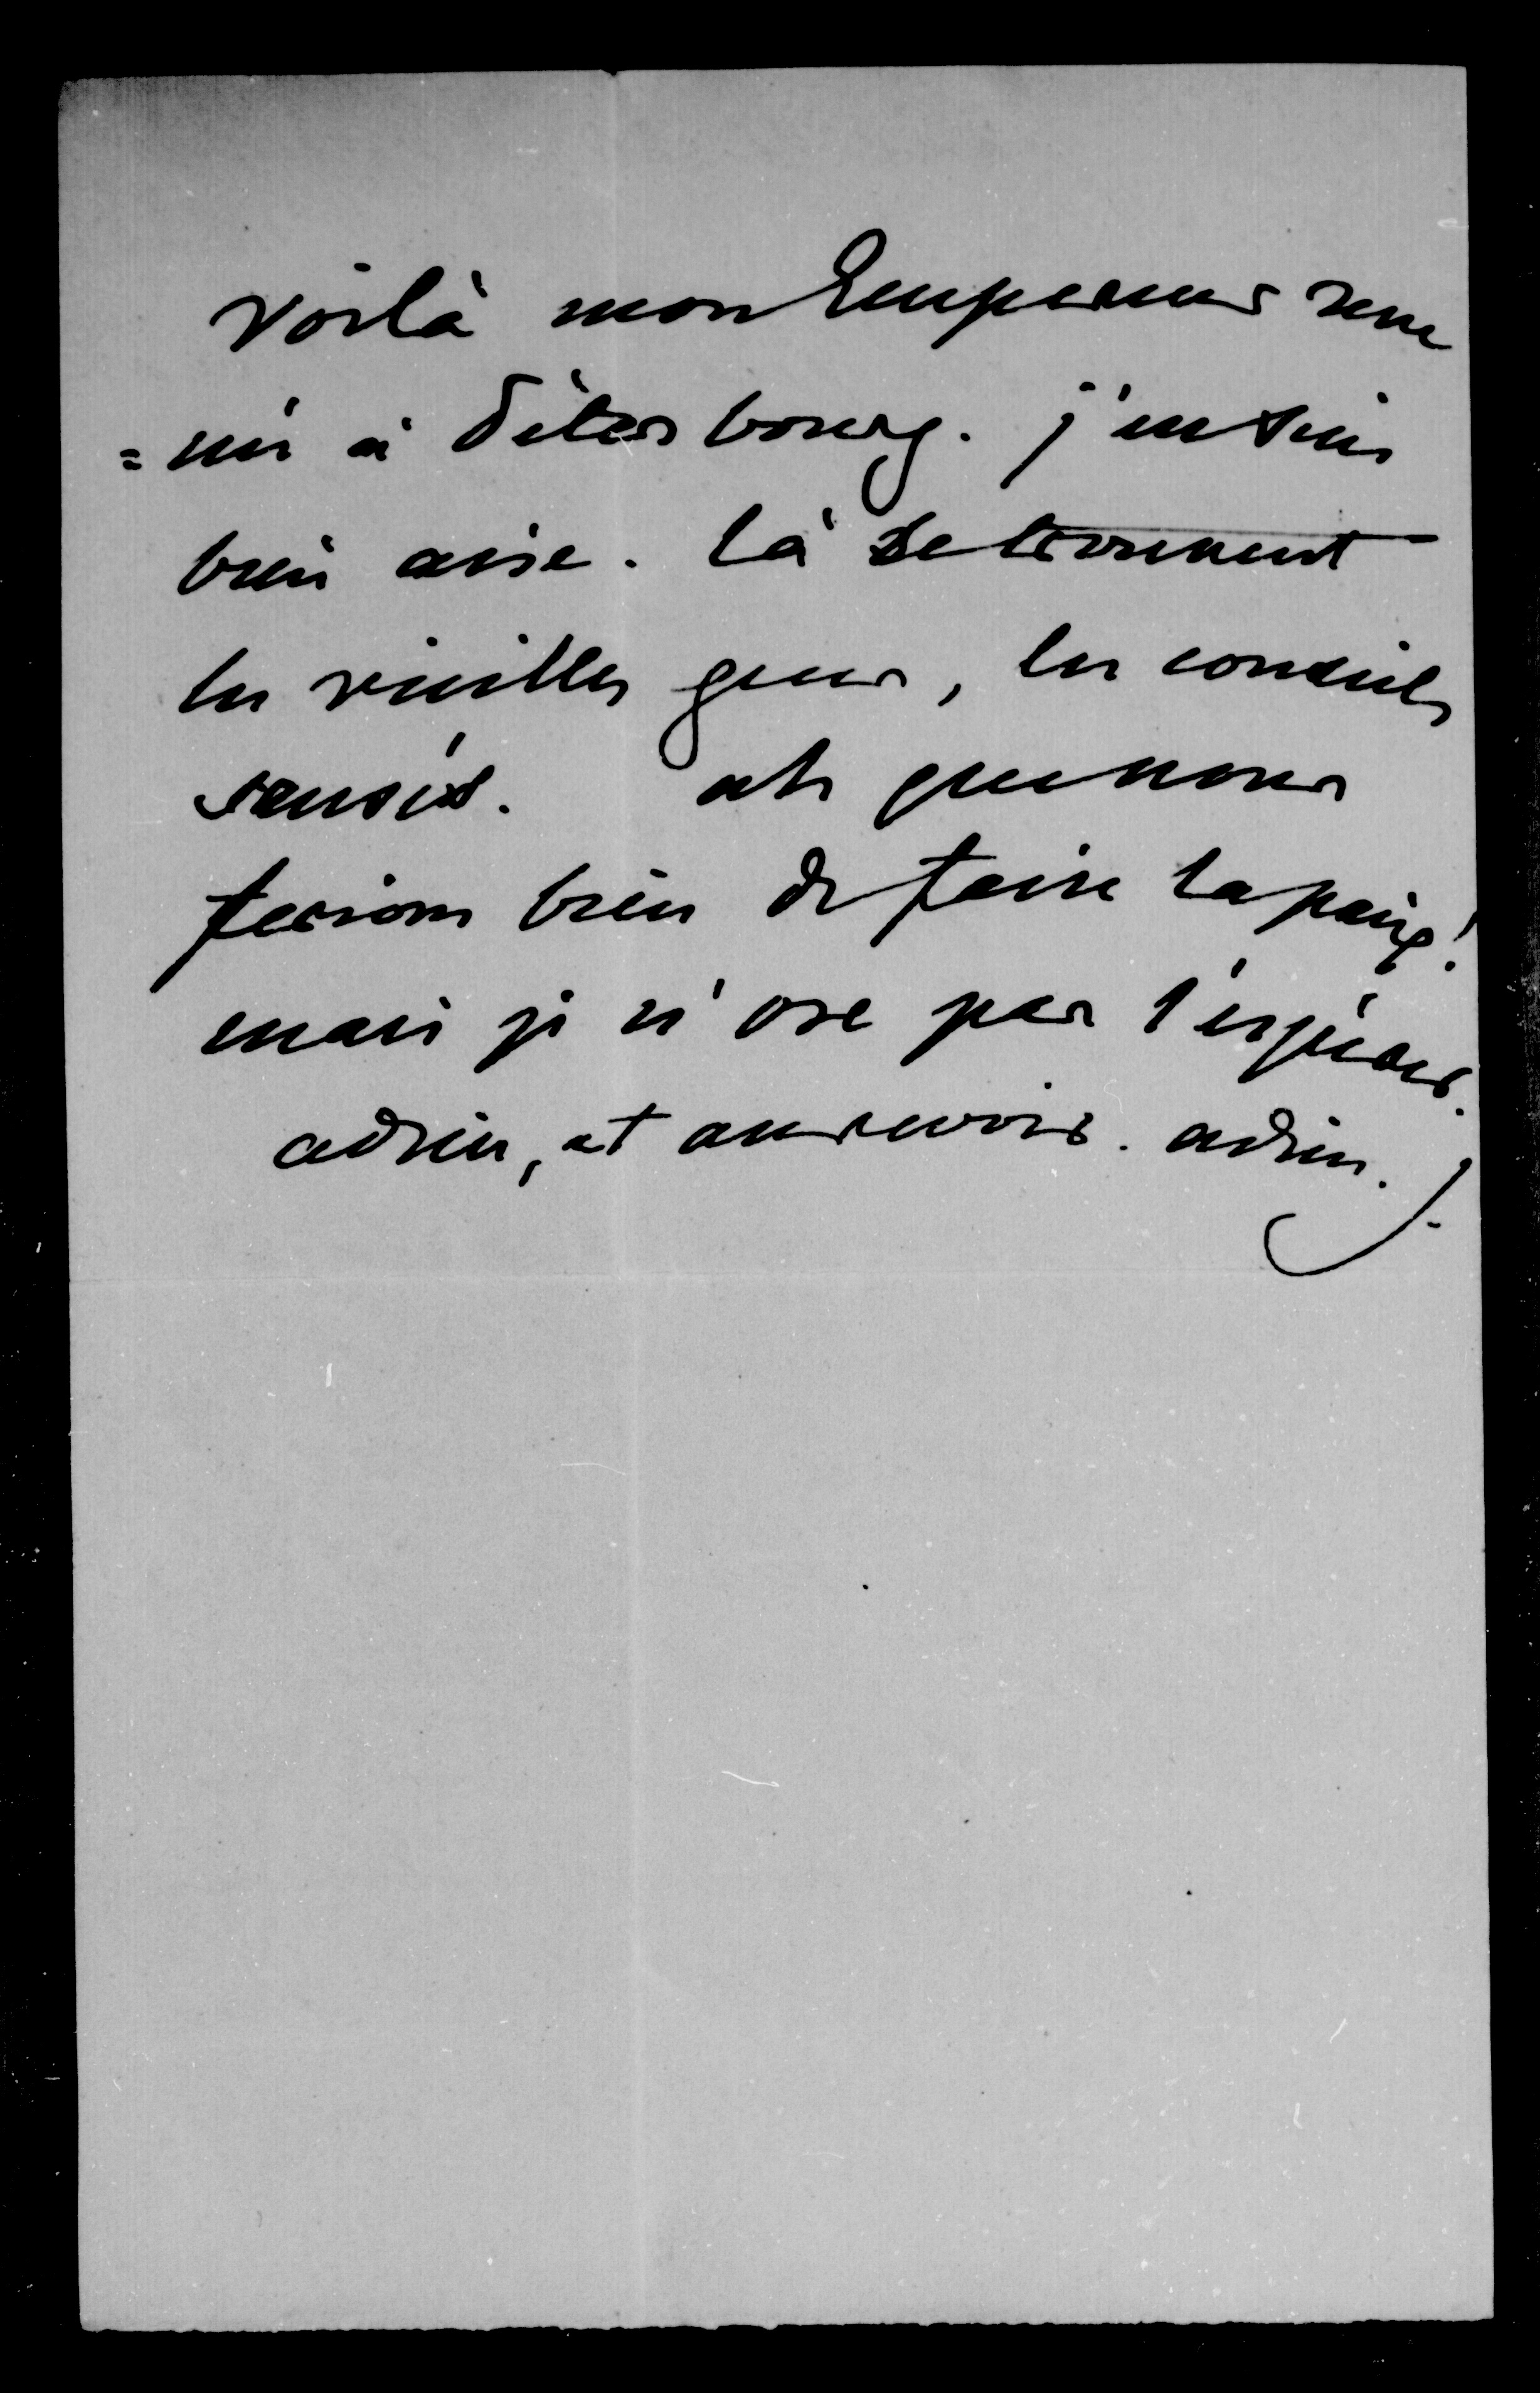 voilà mon Empereur reve
=nu à Pétersbourg. j'en suis
bien aise. là se trouvent
les vieilles gens, les conseils
sensés. ah que nous
ferions bien de faire la paix!
mais je n'ose pas l'espérer.
adieu, et au revoir. adieu.
J.